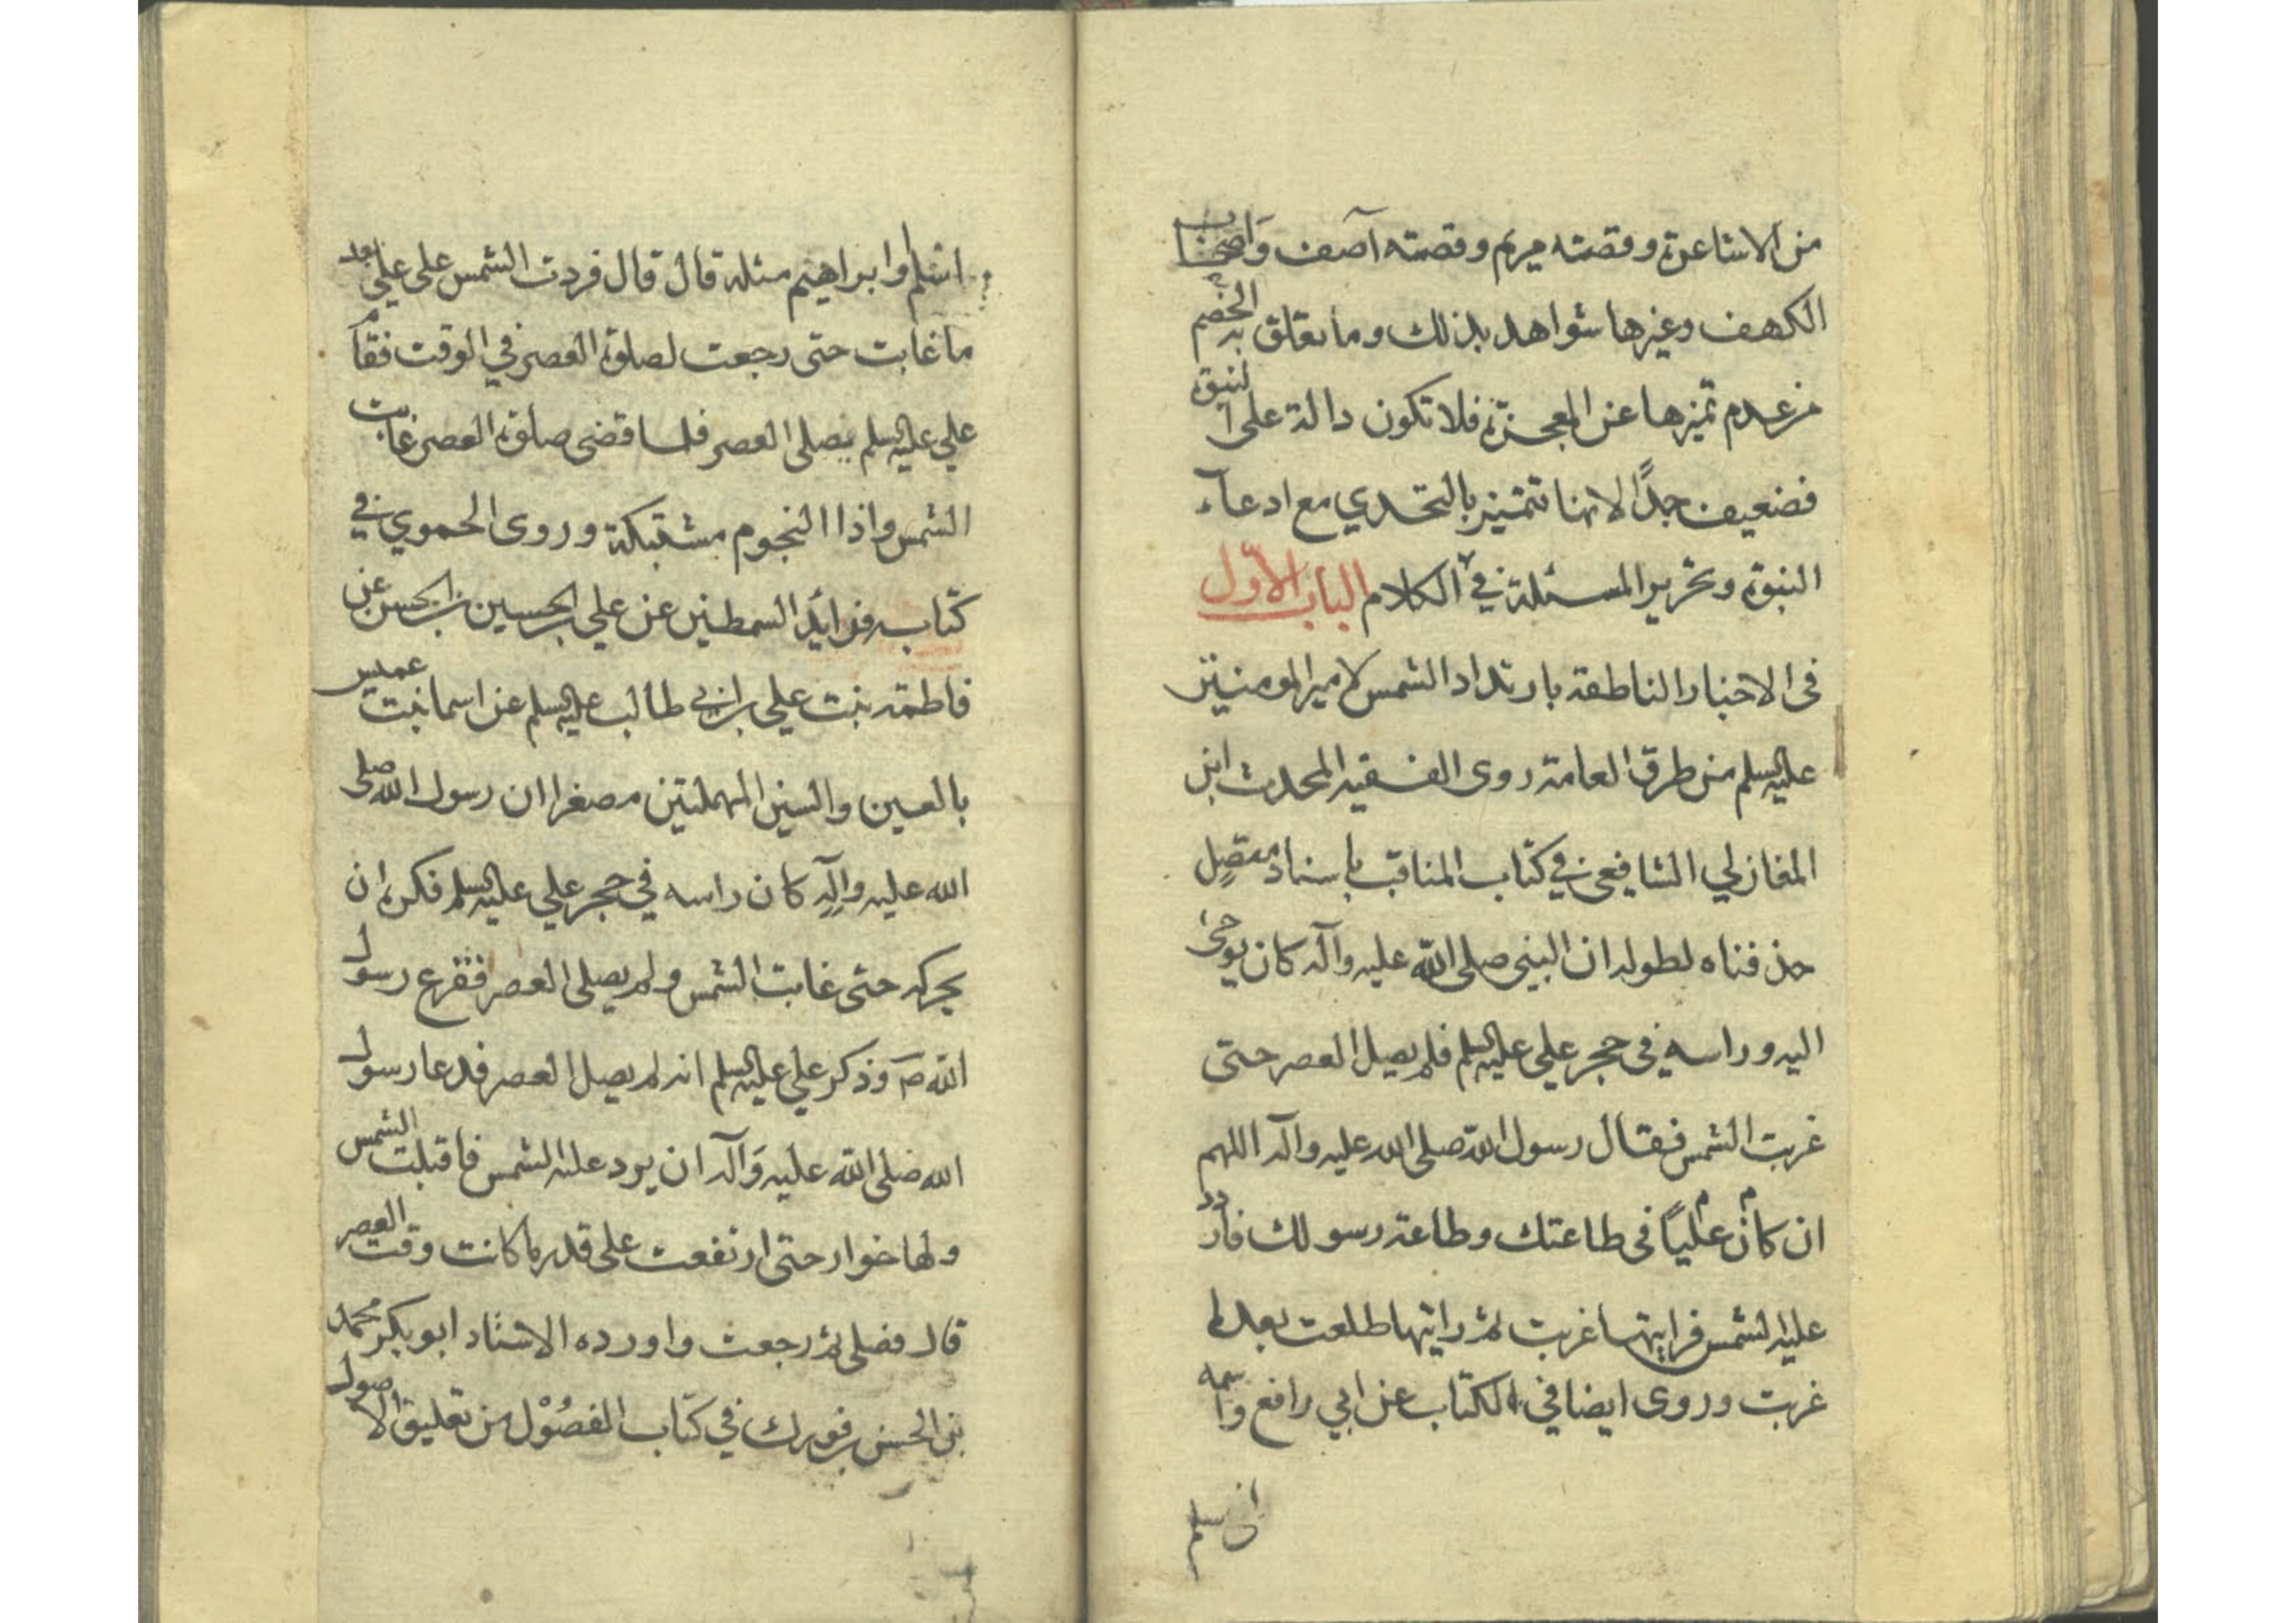 من الاشاعرة وقصته مريم وقصته آصف واصحاب
الكهف وغيرها شواهد بذلك وما تعلق به الخصم
من عدم تميزها عن المعجزة فلا تكون دالة على النبوة
فضعيف جدًا لانها تتميز بالتحدي مع ادعآء
النبوة وتحرير المسئلة في الكلام الباب الأول
فى الاخبار الناطقة بارتداد الشمس لامير المومنين
عليه السلم من طرق العامة روى الفقيه المحدث ابن
المغازلي الشافعي في كتاب المناقب باسناد متصل
حذفناه لطوله ان النبي صلى الله عليه وآله كان يوحى
اليه وراسه فى حجر علي عليه السلم فلم يصل العصر حتى
غربت الشمس فقال رسول الله صلى الله عليه وآله اللهم
ان كان عليًا فى طاعتك وطاعة رسولك فاردد
عليه الشمس فرايتها غربت ثم رايتها طلعت بعد ما
غربت وروى ايضا في الكتاب عن ابي رافع واسمه
اسلم وابراهيم مثله قال قال فردت الشمس على علي بعد
ما غابت حتى رجعت لصلوة العصر في الوقت فقام
علي عليه السلم يصلى العصر فلما قضى صلوة العصر غابت
الشمس واذا النجوم مشتبكة وروى الحموي في
كتاب فرايد السمطين عن علي بن الحسين بن الحسن عن
فاطمة بنت علي بن ابي طالب عليه السلم عن اسما بنت عميس
بالعين والسين المهملتين مصغرا ان رسول الله صلى
الله عليه وآله كان راسه في حجر علي عليه السلم فكره ان
يحركه حتى غابت الشمس ولم يصلى العصر ففزع رسول
الله ص وذكر علي عليه السلم انه لم يصل العصر فدعا رسول
الله صلى الله عليه وآله ان يرد عليه الشمس فاقبلت الشمس
ولها خوار حتى ارتفعت على قدر ما كانت وقت العصر
قال فصلى ثم رجعت واورده الاستاد ابو بكر محمد
بن الحسن بن فورك في كتاب الفصول من تعليق الاصول